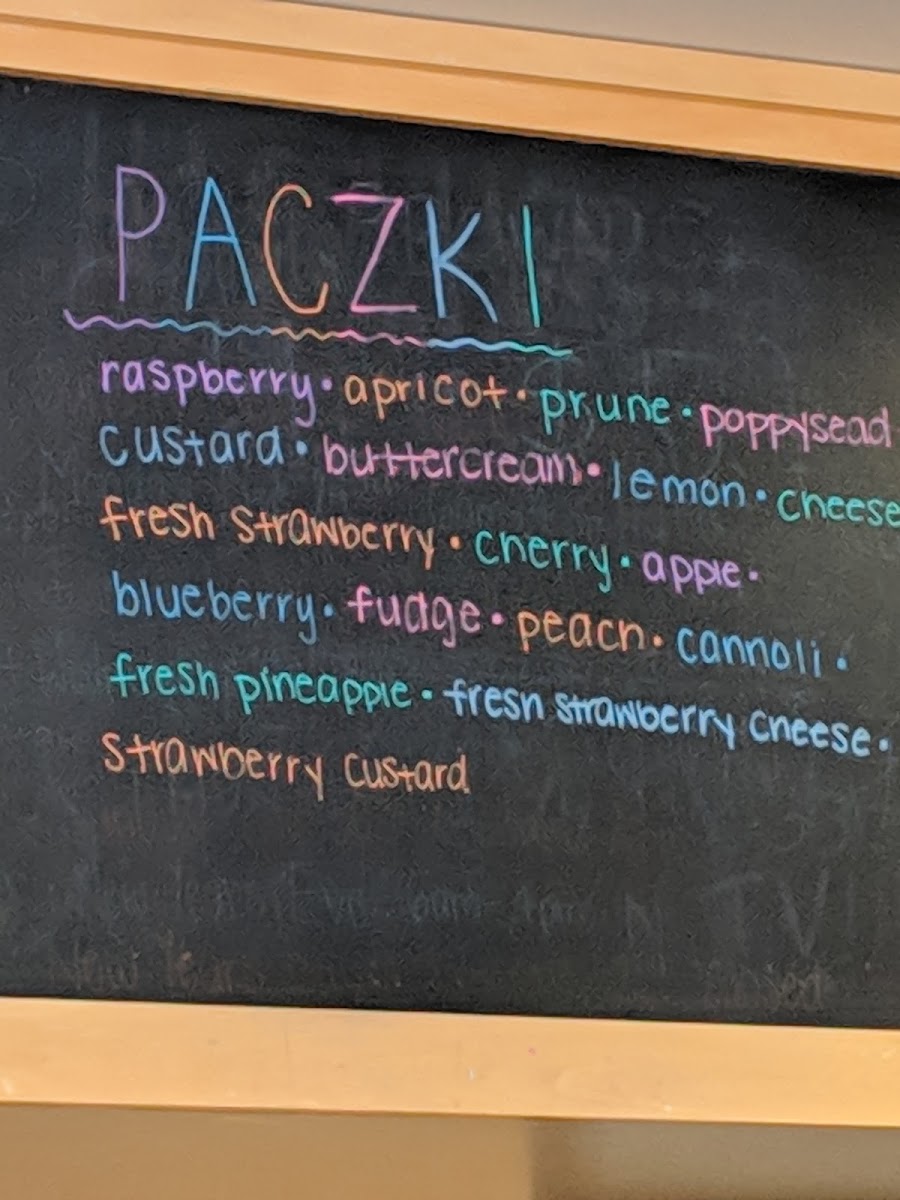 PACZKI
raspberry • apricot • prune • poppysead
custard • buttercream • lemon • cheese
fresh strawberry • cherry • apple •
blueberry • fudge • peach • cannoli •
fresh pineapple • fresh strawberry cheese •
strawberry custard